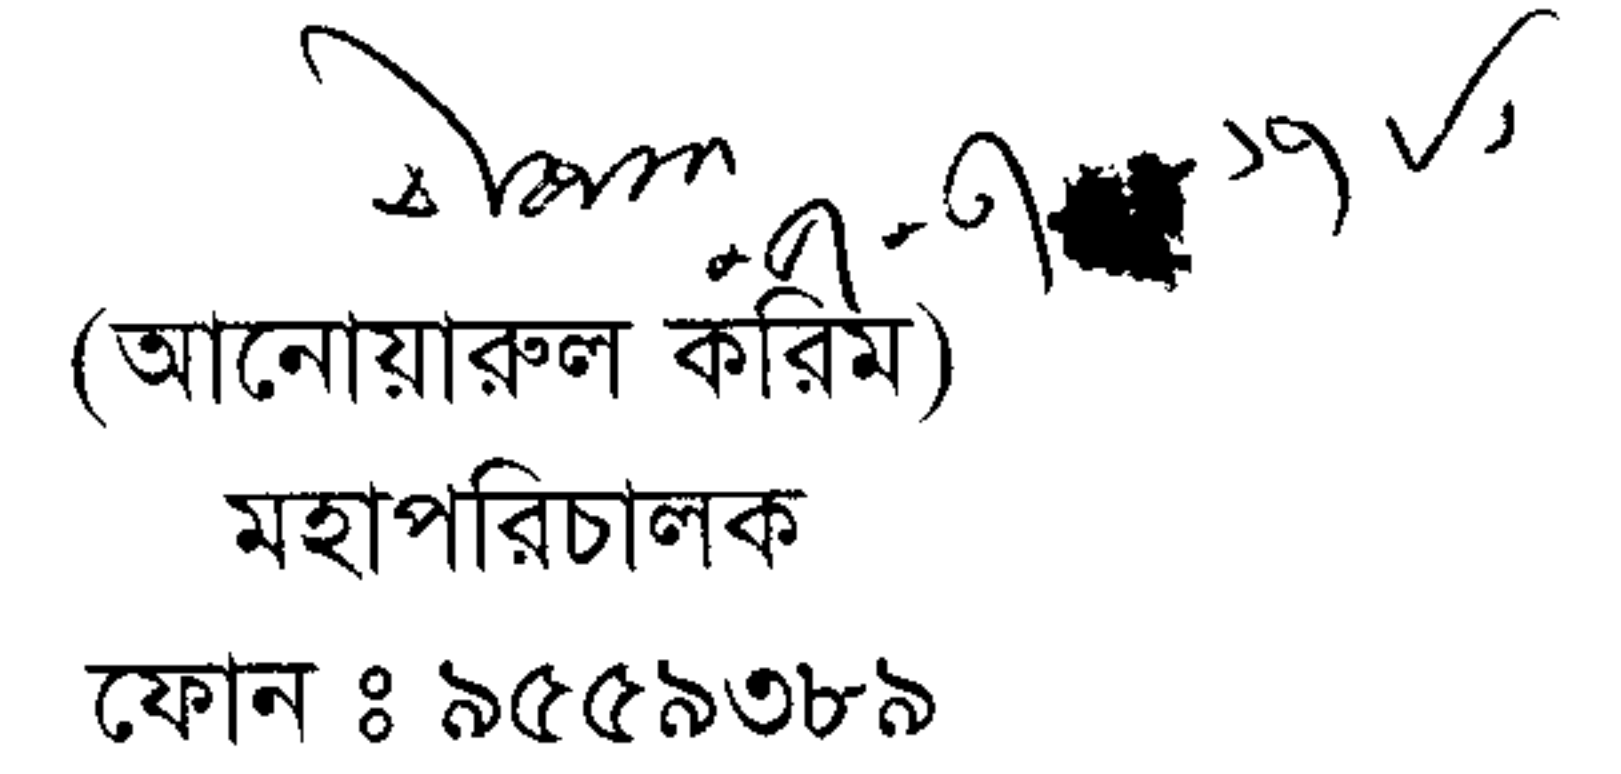 (আনোয়ারুল করিম)
মহাপরিচালক
ফোন : ৯৫৫৯৩৮৯